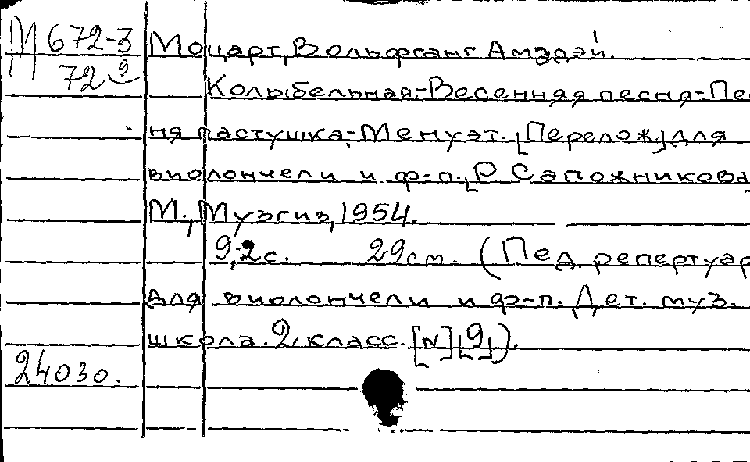 М 672-3
72 9
Моцарт, Вольфганг Амэдэй.
Колыбельная.-Весенняя песня.-Пе
ня пастушка.-Менуэт. [Перелож.] для
виолончели и ф-п. [Р Сапожникова]
М., Музгиз, 1954.
9,2 с. 29 см. (Пед. репертуар
для виолончели и ф-п. Дет. муз.
школа. 2 класс. [N] [9]).
24030.